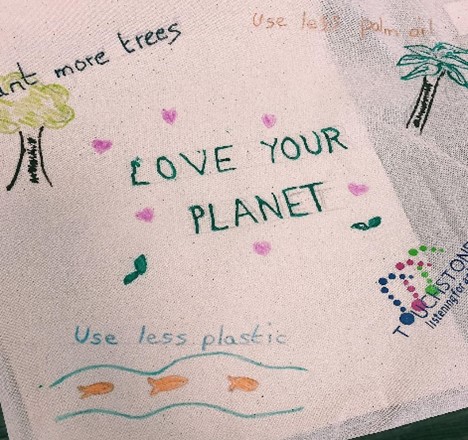 ant more trees
Use less palm oil
LOVE YOUR
PLANET
TOUCHSTON
listening for
Use less plastic